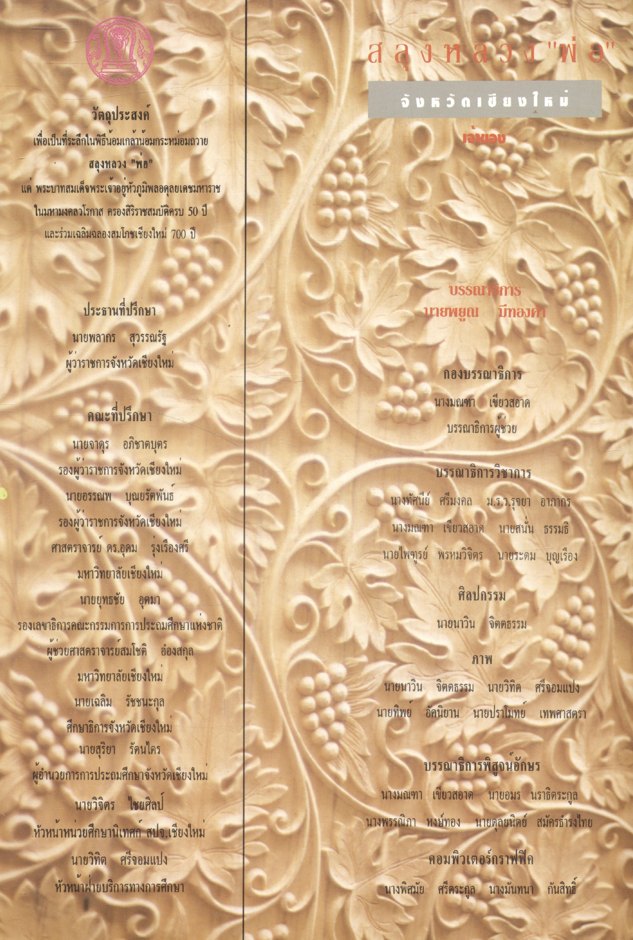 วัตถุประสงค์
เพื่อเป็นที่ระลึกในพิธีน้อมเกล้าน้อมกระหม่อมถวาย
สลุงหลวง "พ่อ"
แด่ พระบาทสมเด็จพระเจ้าอยู่หัวภูมิพลอดุลยเดชมหาราช
ในมหามงคลวโรกาส ครองสิริราชสมบัติครบ 50 ปี
และร่วมเฉลิมฉลองสมโภชเชียงใหม่ 700 ปี
ประธานที่ปรึกษา
นายพลากร สุวรรณรัฐ
ผู้ว่าราชการจังหวัดเชียงใหม่
คณะที่ปรึกษา
นายจาดุร อภิชาตบุตร
รองผู้ว่าราชการจังหวัดเชียงใหม่
นายอรรณพ บุณยรัตพันธ์
รองผู้ว่าราชการจังหวัดเชียงใหม่
ศาสตราจารย์ ดร.อุดม รุ่งเรืองศรี
มหาวิทยาลัยเชียงใหม่
นายยุทธชัย อุตมา
รองเลขาธิการคณะกรรมการการประถมศึกษาแห่งชาติ
ผู้ช่วยศาสตราจารย์สมโชติ อ๋องสกุล
มหาวิทยาลัยเชียงใหม่
นายเฉลิม รัชชนะกุล
ศึกษาธิการจังหวัดเชียงใหม่
นายสุริยา รัตนไตร
ผู้อำนวยการการประถมศึกษาจังหวัดเชียงใหม่
นายวิจิตร ไชยศิลป์
หัวหน้าหน่วยศึกษานิเทศก์ สปจ.เชียงใหม่
นายวิทิต ศรีจอมแปง
หัวหน้าฝ่ายบริการทางการศึกษา
สลุงหลวง "พ่อ"
จังหวัดเชียงใหม่
บรรณาธิการ
นายพยูณ มีทองคำ
กองบรรณาธิการ
นางมณฑา เขียวสอาด
บรรณาธิการผู้ช่วย
บรรณาธิการวิชาการ
นางทัศนีย์ ศรีมงคล ม.ร.ว.รุจยา อาภากร
นางมณฑา เขียวสอาด นายสนั่น ธรรมธิ
นายไพฑูรย์ พรหมวิจิตร นายระดม บุญเรือง
ศิลปกรรม
นายนาวิน จิตตธรรม
ภาพ
นายนาวิน จิตตธรรม นายวิทิต ศรีจอมแปง
นายทิพย์ อัศนียาน นายปราโมทย์ เทพศาสตรา
บรรณาธิการพิสูจน์อักษร
นางมณฑา เขียวสอาด นายอมร นราธิตระกูล
นางพรรณิภา หงษ์ทอง นายดุลยนิตย์ สมัครธำรงไทย
คอมพิวเตอร์กราฟฟิค
นางพิศมัย ศรีตระกูล นางมันทนา กันสิทธิ์